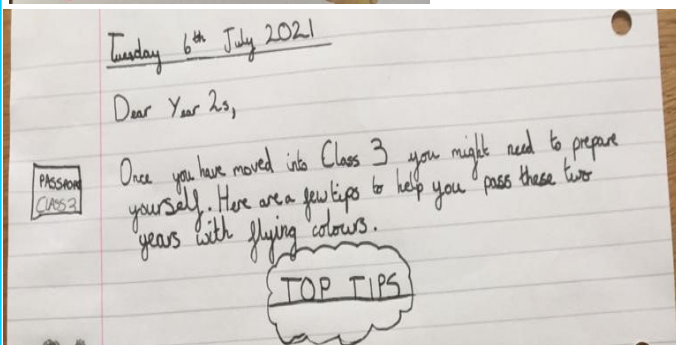 Tuesday 6th July 2021
Dear Year 2s,
Once you have moved into Class 3 you might need to prepare
yourself. Here are a few tips to help you pass these two
years with flying colours.
PASSPORT
CLASS 3
TOP TIPS